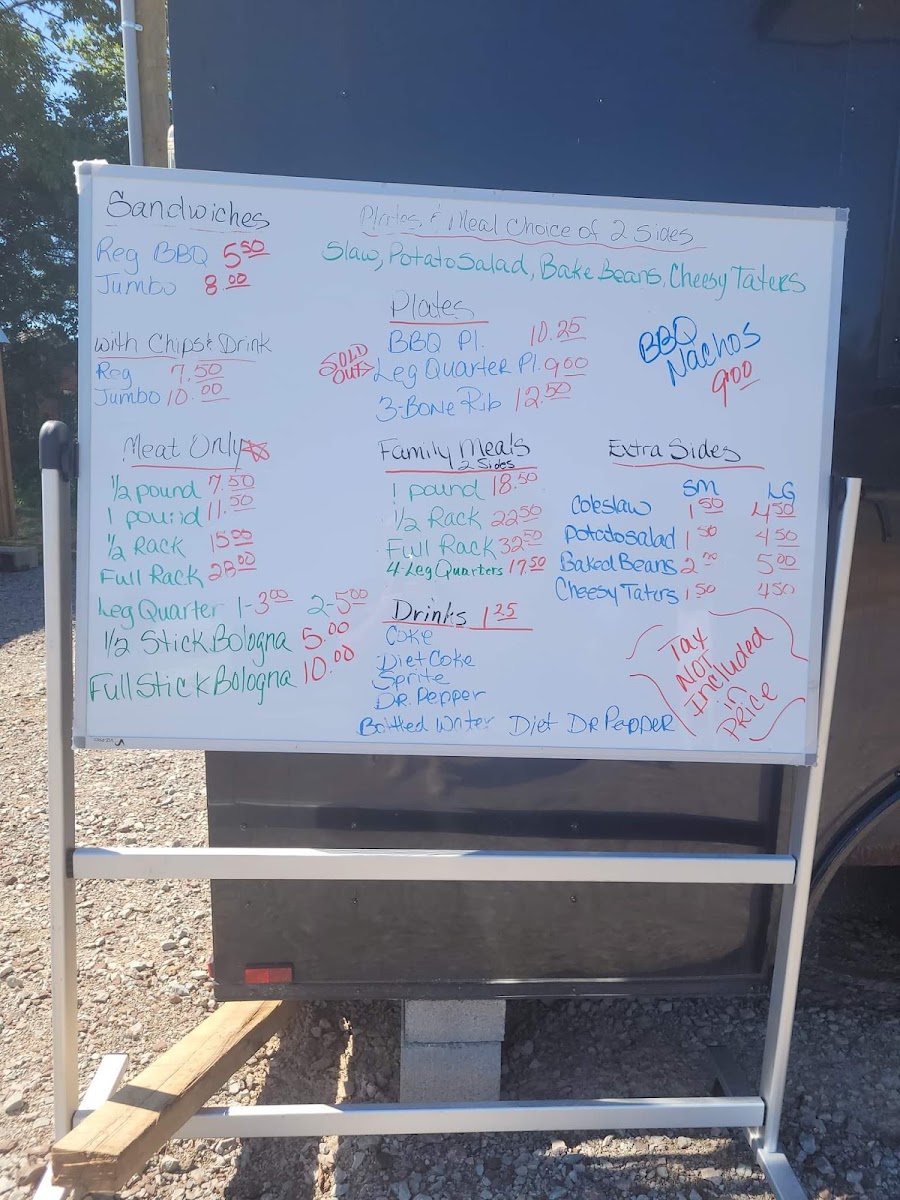 Sandwiches
Reg BBQ 5.50
Jumbo 8.00
with Chips & Drink
Reg 7.50
Jumbo 10.00
Plates, & Meal Choice of 2 Sides
Slaw, Potato Salad, Bake Beans, Cheesy Taters
Plates
BBQ Pl. 10.25
SOLD OUT Leg Quarter Pl. 9.00
3-Bone Rib 12.50
BBQ
Nachos
9.00
Meat Only
1/2 pound 7.50
1 pound 11.50
1/2 Rack 15.00
Full Rack 28.00
Leg Quarter 1-3.00 2-5.00
1/2 Stick Bologna 5.00
Full Stick Bologna 10.00
Family Meals
2 Sides
1 pound 18.50
1/2 Rack 22.50
Full Rack 32.50
4-Leg Quarters 17.50
Drinks 1.25
Coke
Diet Coke
Sprite
DR. Pepper
Bottled Water Diet Dr Pepper
Extra Sides
SM LG
Coleslaw 1.50 4.50
Potato salad 1.50 4.50
Baked Beans 2.00 5.00
Cheesy Taters 1.50 4.50
Tax
NOT
Included
in
PRICE